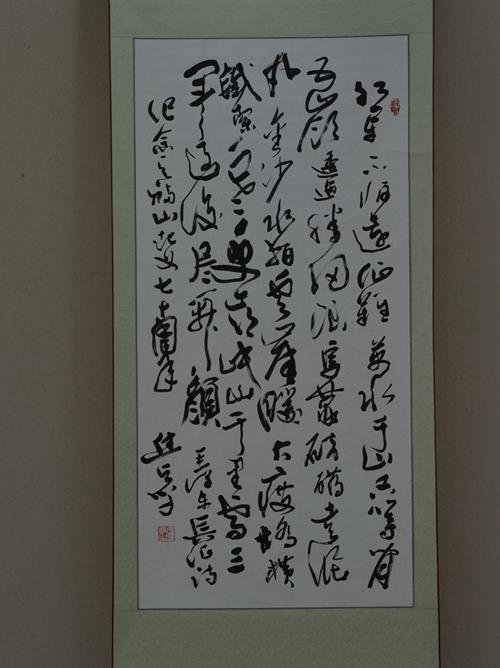 红军不怕遠征難萬水千山只等闲
五岭逶迤腾细浪乌蒙磅礴走泥
丸金沙水拍云崖暖大渡桥横
鐵索寒更喜岷山千里雪三
军过後尽开颜 毛泽东长征诗
纪念天福山起义七十周年